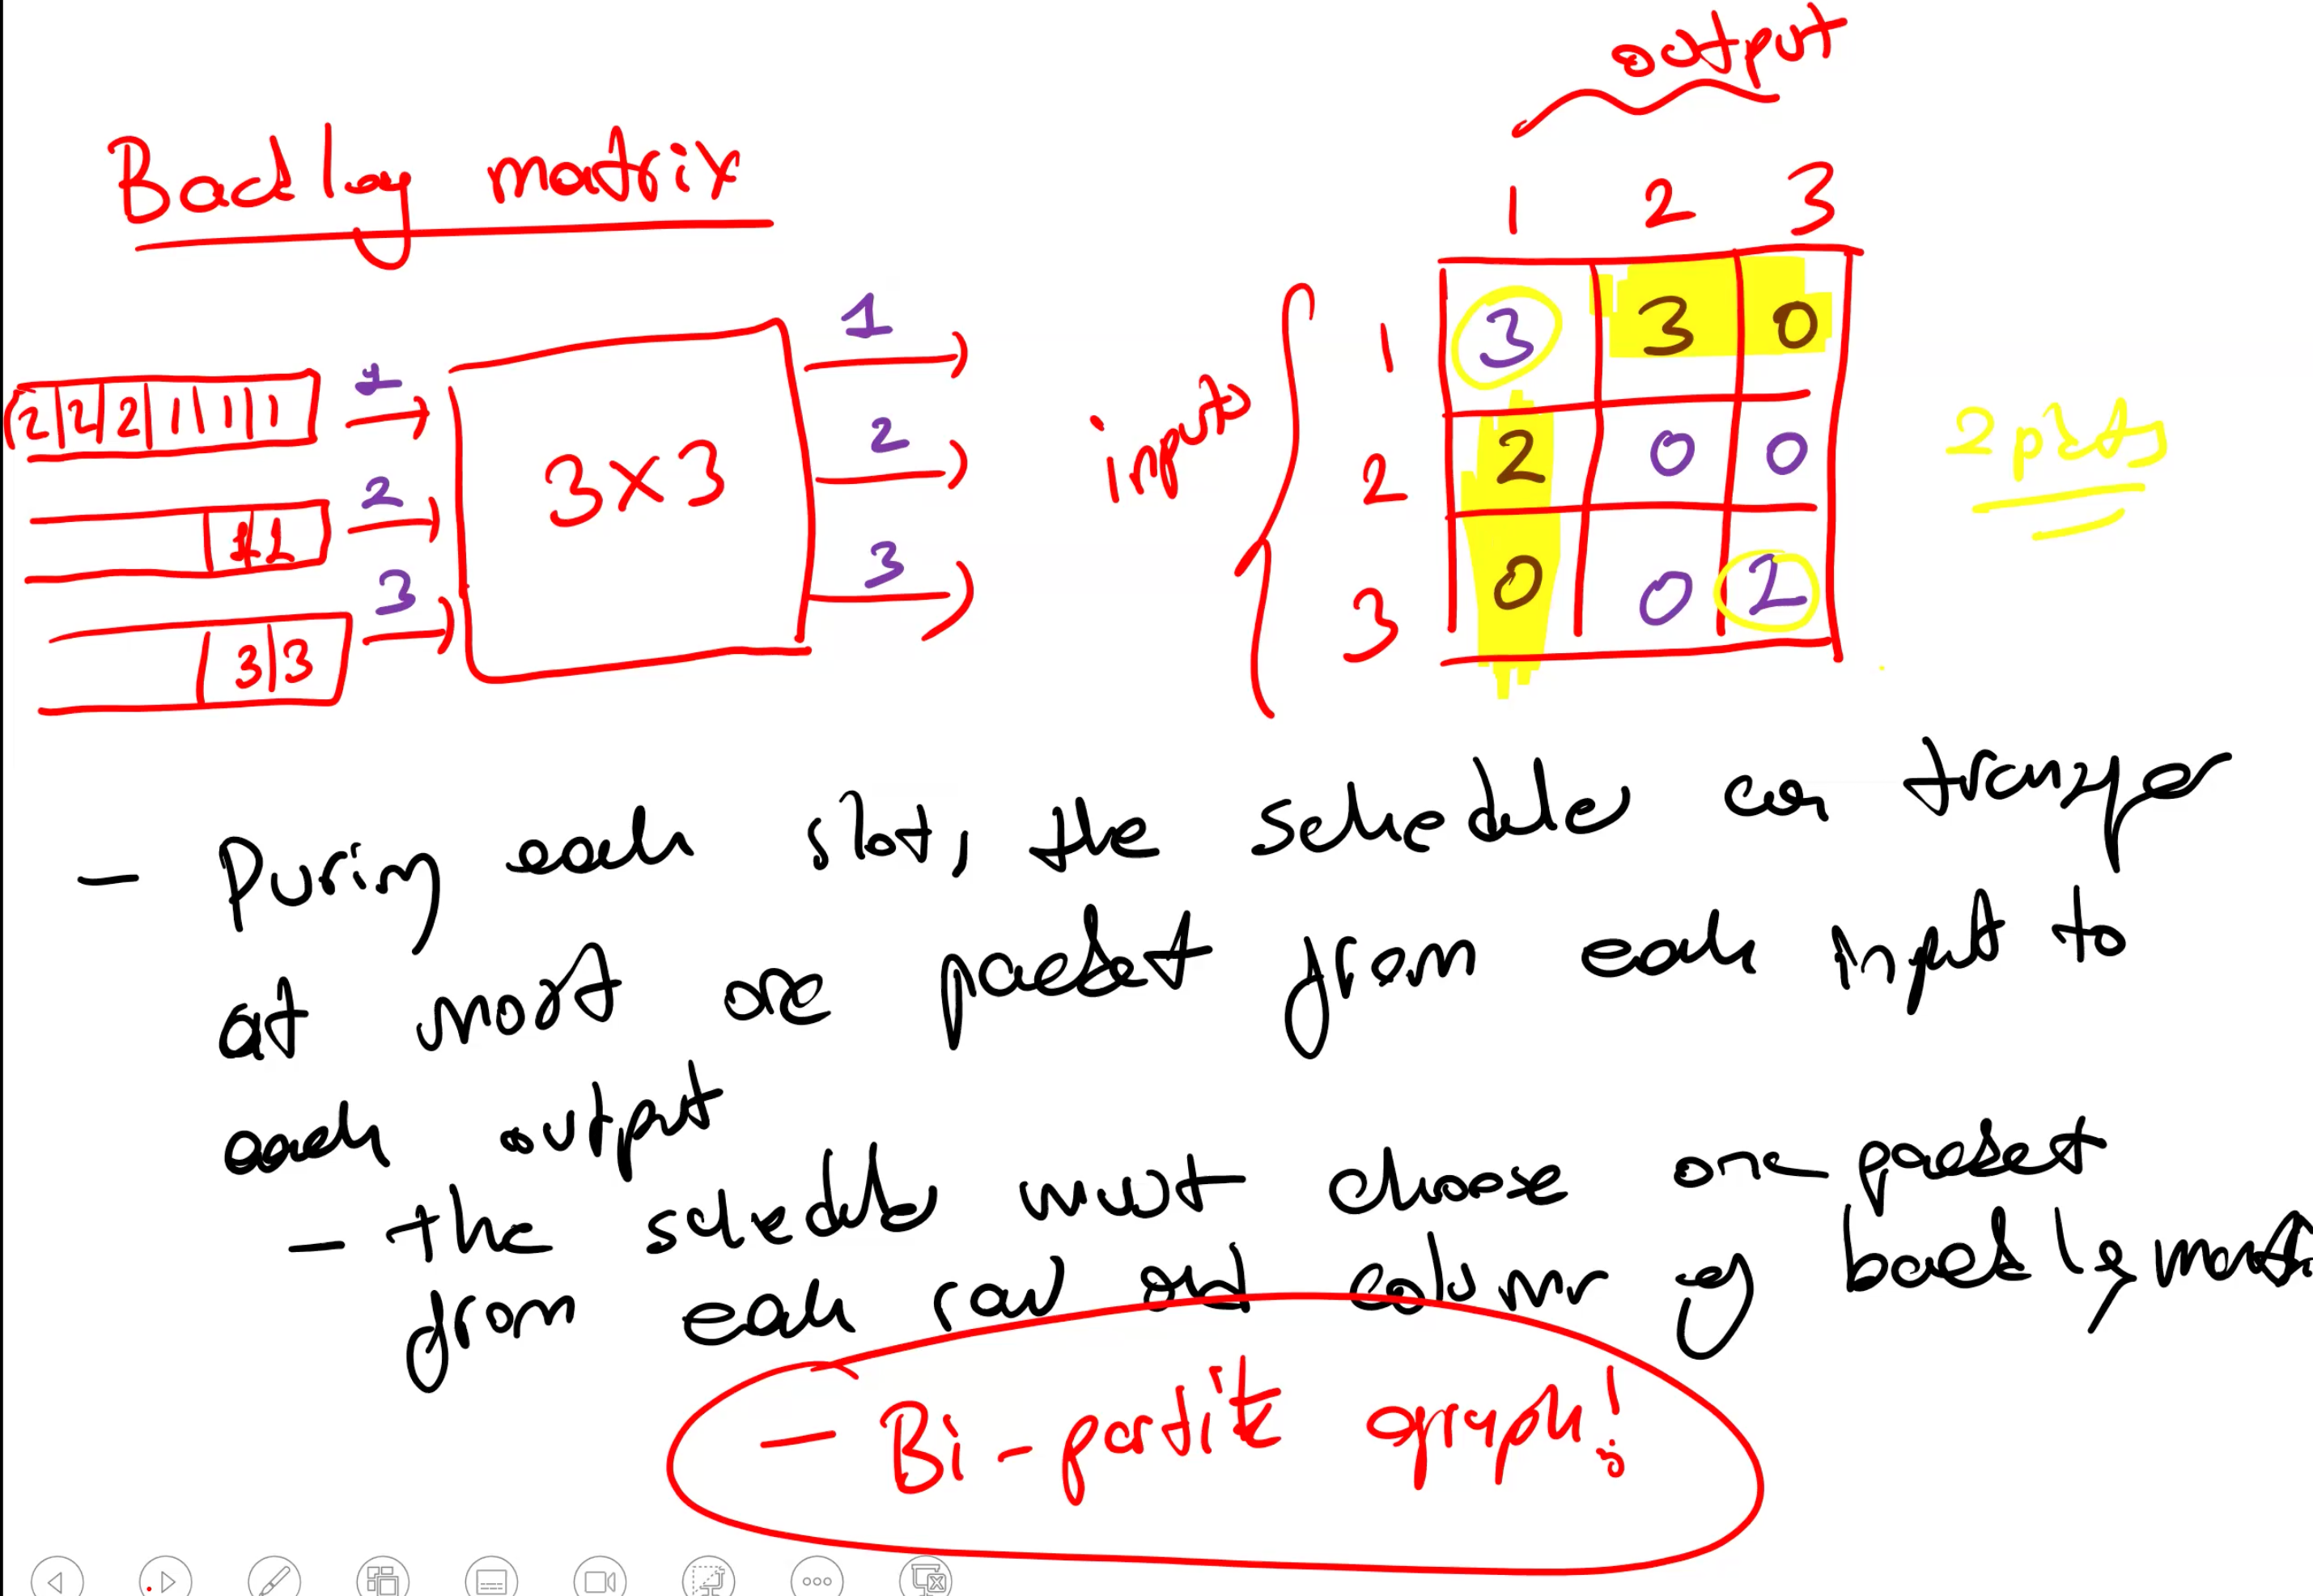 output
Backlog matrix
1 2 3
2 2 2 1 1 1
1
3x3
1
1 1
2
2
3 3
3
3
input
1 3 3 0
2 2 0 0
3 0 0 2
2 pkts
- During each slot, the scheduler can transfer
at most one packet from each input to
each output
- The scheduler must choose one packet
from each row and column of backlog matrix
- Bi-partite graph!